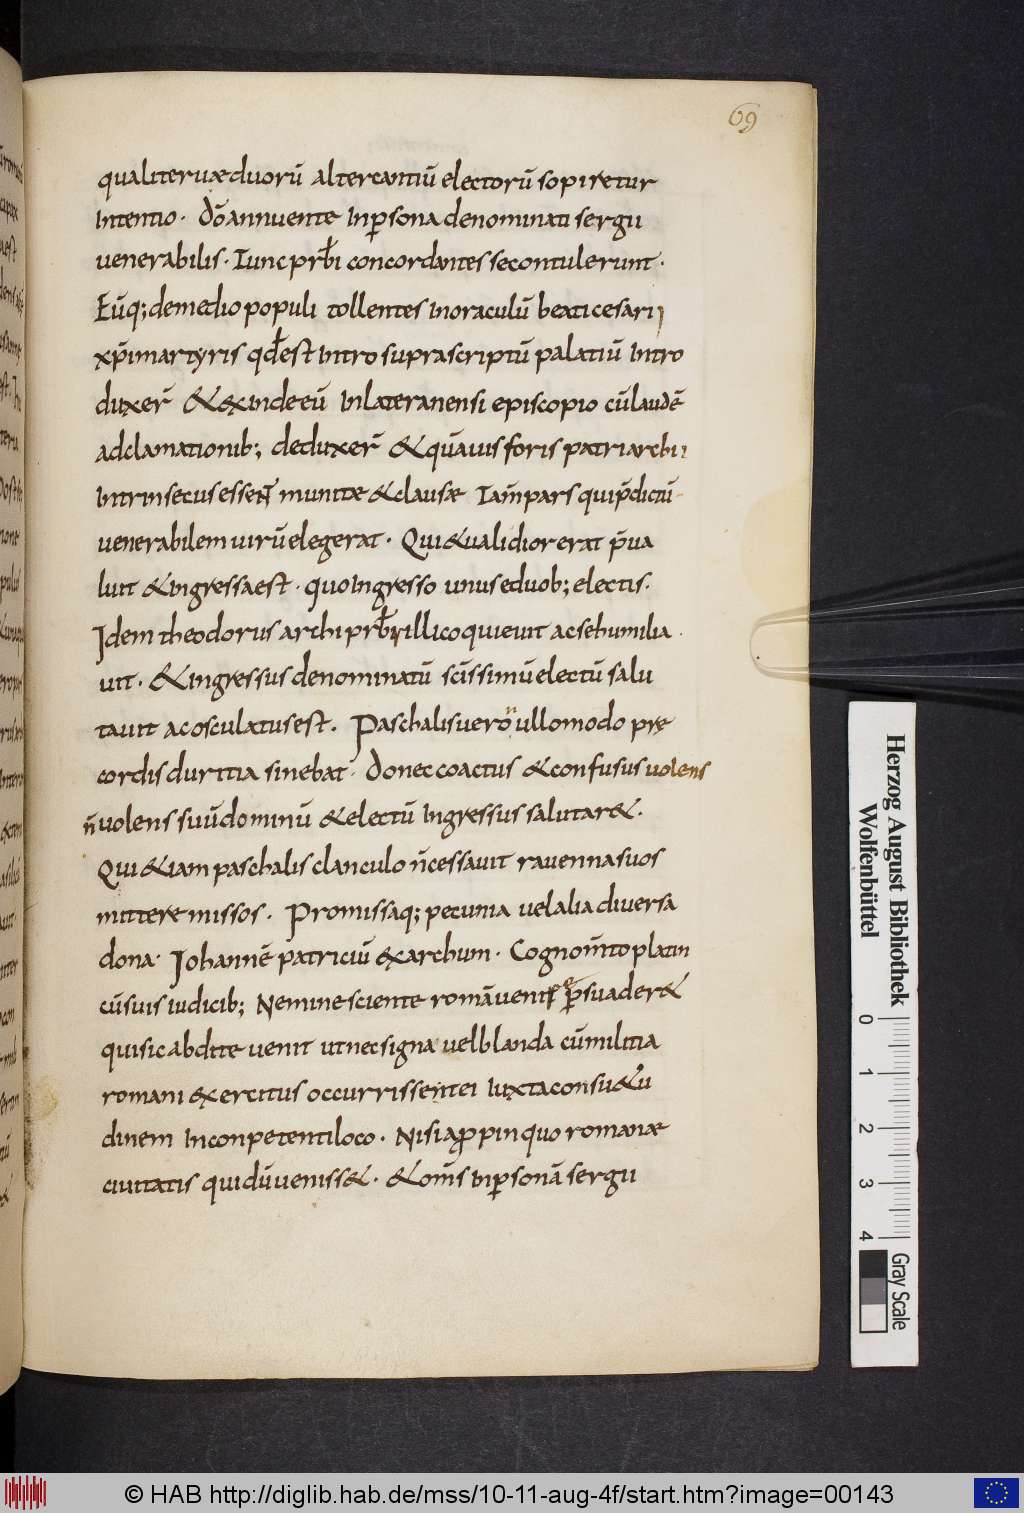 69
qualiteruae duorū altercantiū electorū sopiretur
intentio · dō annuente inꝑsona denominati sergii
uenerabilis · Tunc prb̄i concordantes se contulerunt ·
Eūq; de medio populi tollentes in oraculū beati cesarii
xp̄i martyris qđ est intro suprascriptū palatiū intro
duxer̄ & exinde eū in lateranensi episcopio cū laudē
adclamationib; deduxer̄ & quāuis foris patriarchii
intrinsecus essen̄ munitae & clausae Iam̄ pars qui p̄dictū
uenerabilem uirū elegerat · Qui & ualidior erat p̄ua
luit & ingressa est · quo ingresso unus e duob; electis ·
Idem theodorus archiprb̄r illico quieuit ac se humilia
uit · & ingressus denominatū sc̄issimū electū salu
tauit ac osculatus est . Paschalis uero n̄ ullomodo prę
cordis duritia sinebat · donec coactus & confusus uolens
n̄ uolens suū dominū & electū ingressus salutar& .
Qui & iam paschalis clanculo n̄ cessauit rauenna suos
mittere missos . Promissaq; pecunia uel alia diuersa
dona · Iohannē patriciū & exarchum · Cognom̄to platin
cū suis iudicib; Nemine sciente romā uenire ꝑsuader&
qui sic abdite uenit ut nec signa uel blanda cū militia
romani exercitus occurrissent ei iuxta consu&u
dinem in conpetenti loco · Nisi a ꝓpinquo romanae
ciuitatis qui dū ueniss& · & om̄s in ꝑsonā sergii
Herzog August Bibliothek
Wolfenbüttel
0 1 2 3 4
Gray Scale
© HAB http://diglib.hab.de/mss/10-11-aug-4f/start.htm?image=00143